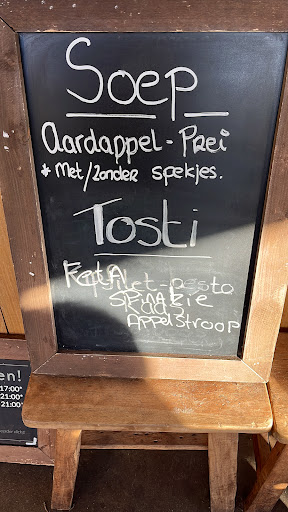 Soep
Aardappel - Prei
* Met/zonder spekjes.
Tosti
SPINAZIE
Appelstroop
en!
17:00*
21:00*
21:00*